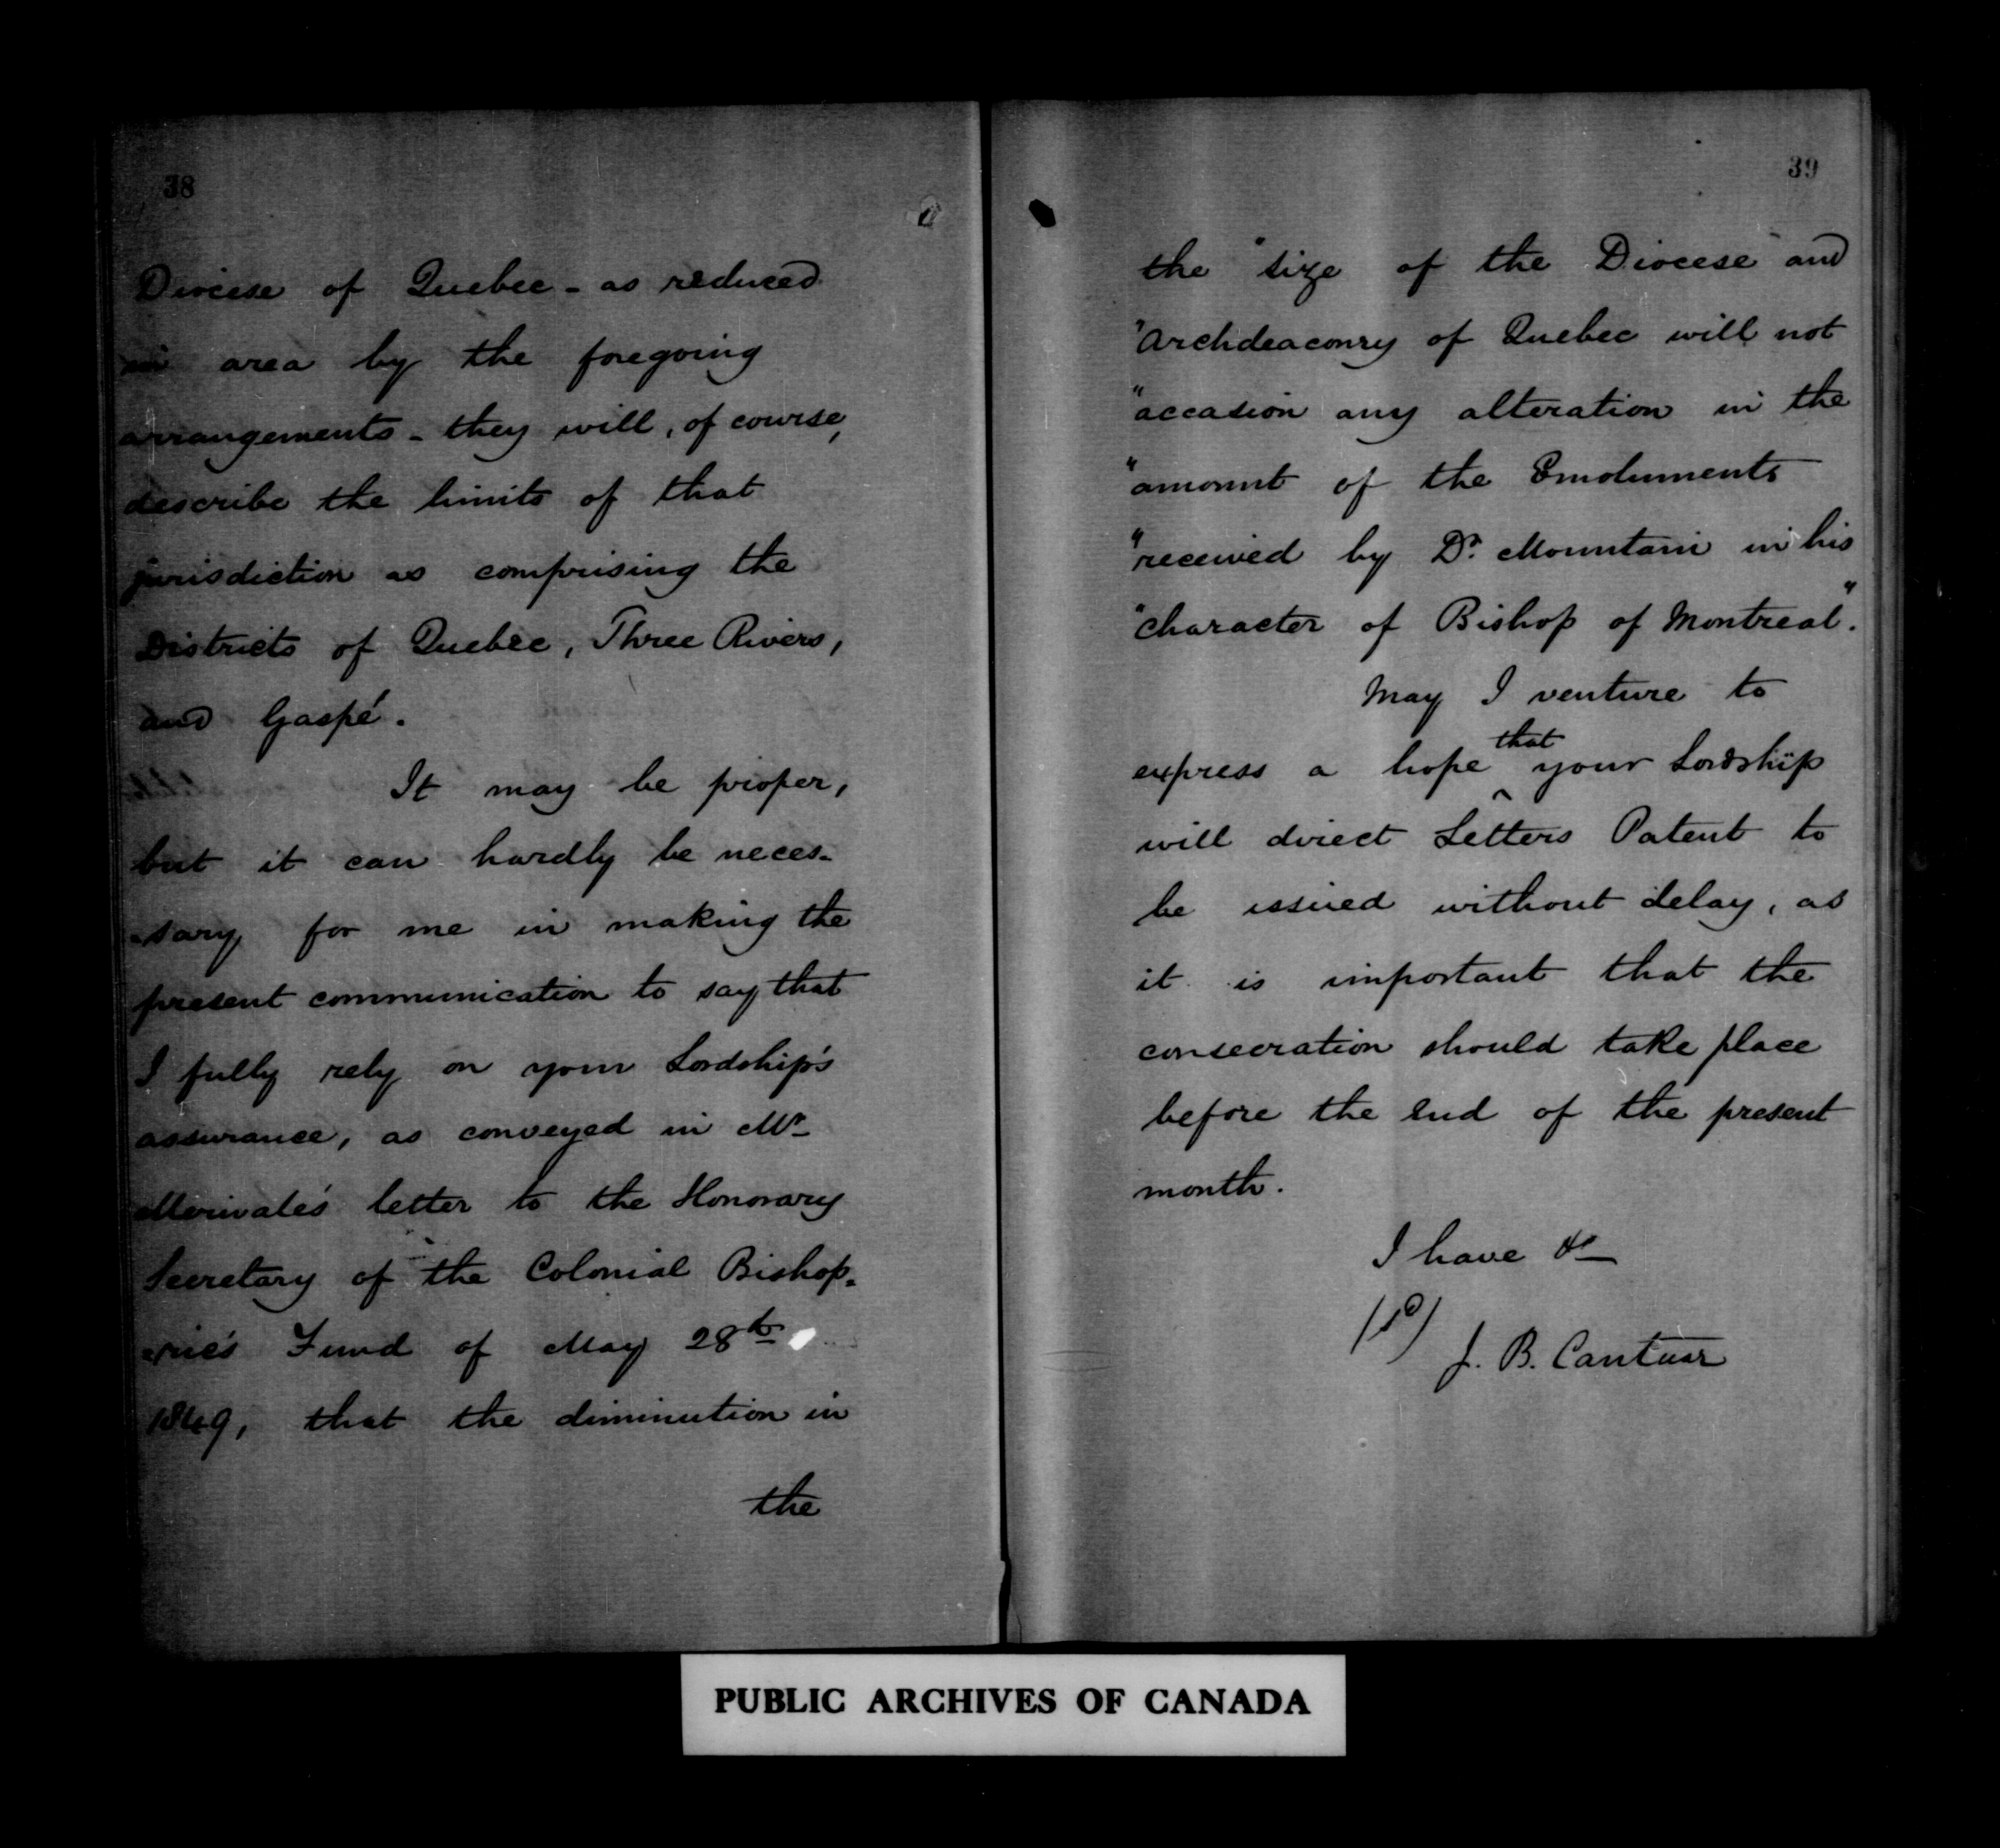 38
Diocese of Quebec - as reduced
in area by the foregoing
arrangements - they will, of course,
describe the limits of that
jurisdiction as comprising the
Districts of Quebec, Three Rivers,
and Gaspé.
It may be proper,
but it can hardly be neces-
-sary for me in making the
present communication to say that
I fully rely on your Lordship's
assurance, as conveyed in Mr
Merivale's letter to the Honorary
Secretary of the Colonial Bishop-
-rie's Fund of May 28th
1849, that the diminution in
the
39
the "size of the Diocese and
"Archdeaconry of Quebec will not
"occasion any alteration in the
"amount of the Emoluments
"received by Dr. Mountain in his
"character of Bishop of Montreal".
May I venture to
express a hope that your Lordship
will direct Letters Patent to
be issued without delay, as
it is important that the
consecration should take place
before the end of the present
month.
I have &c
(sd)
J. B. Cantuar
PUBLIC ARCHIVES OF CANADA